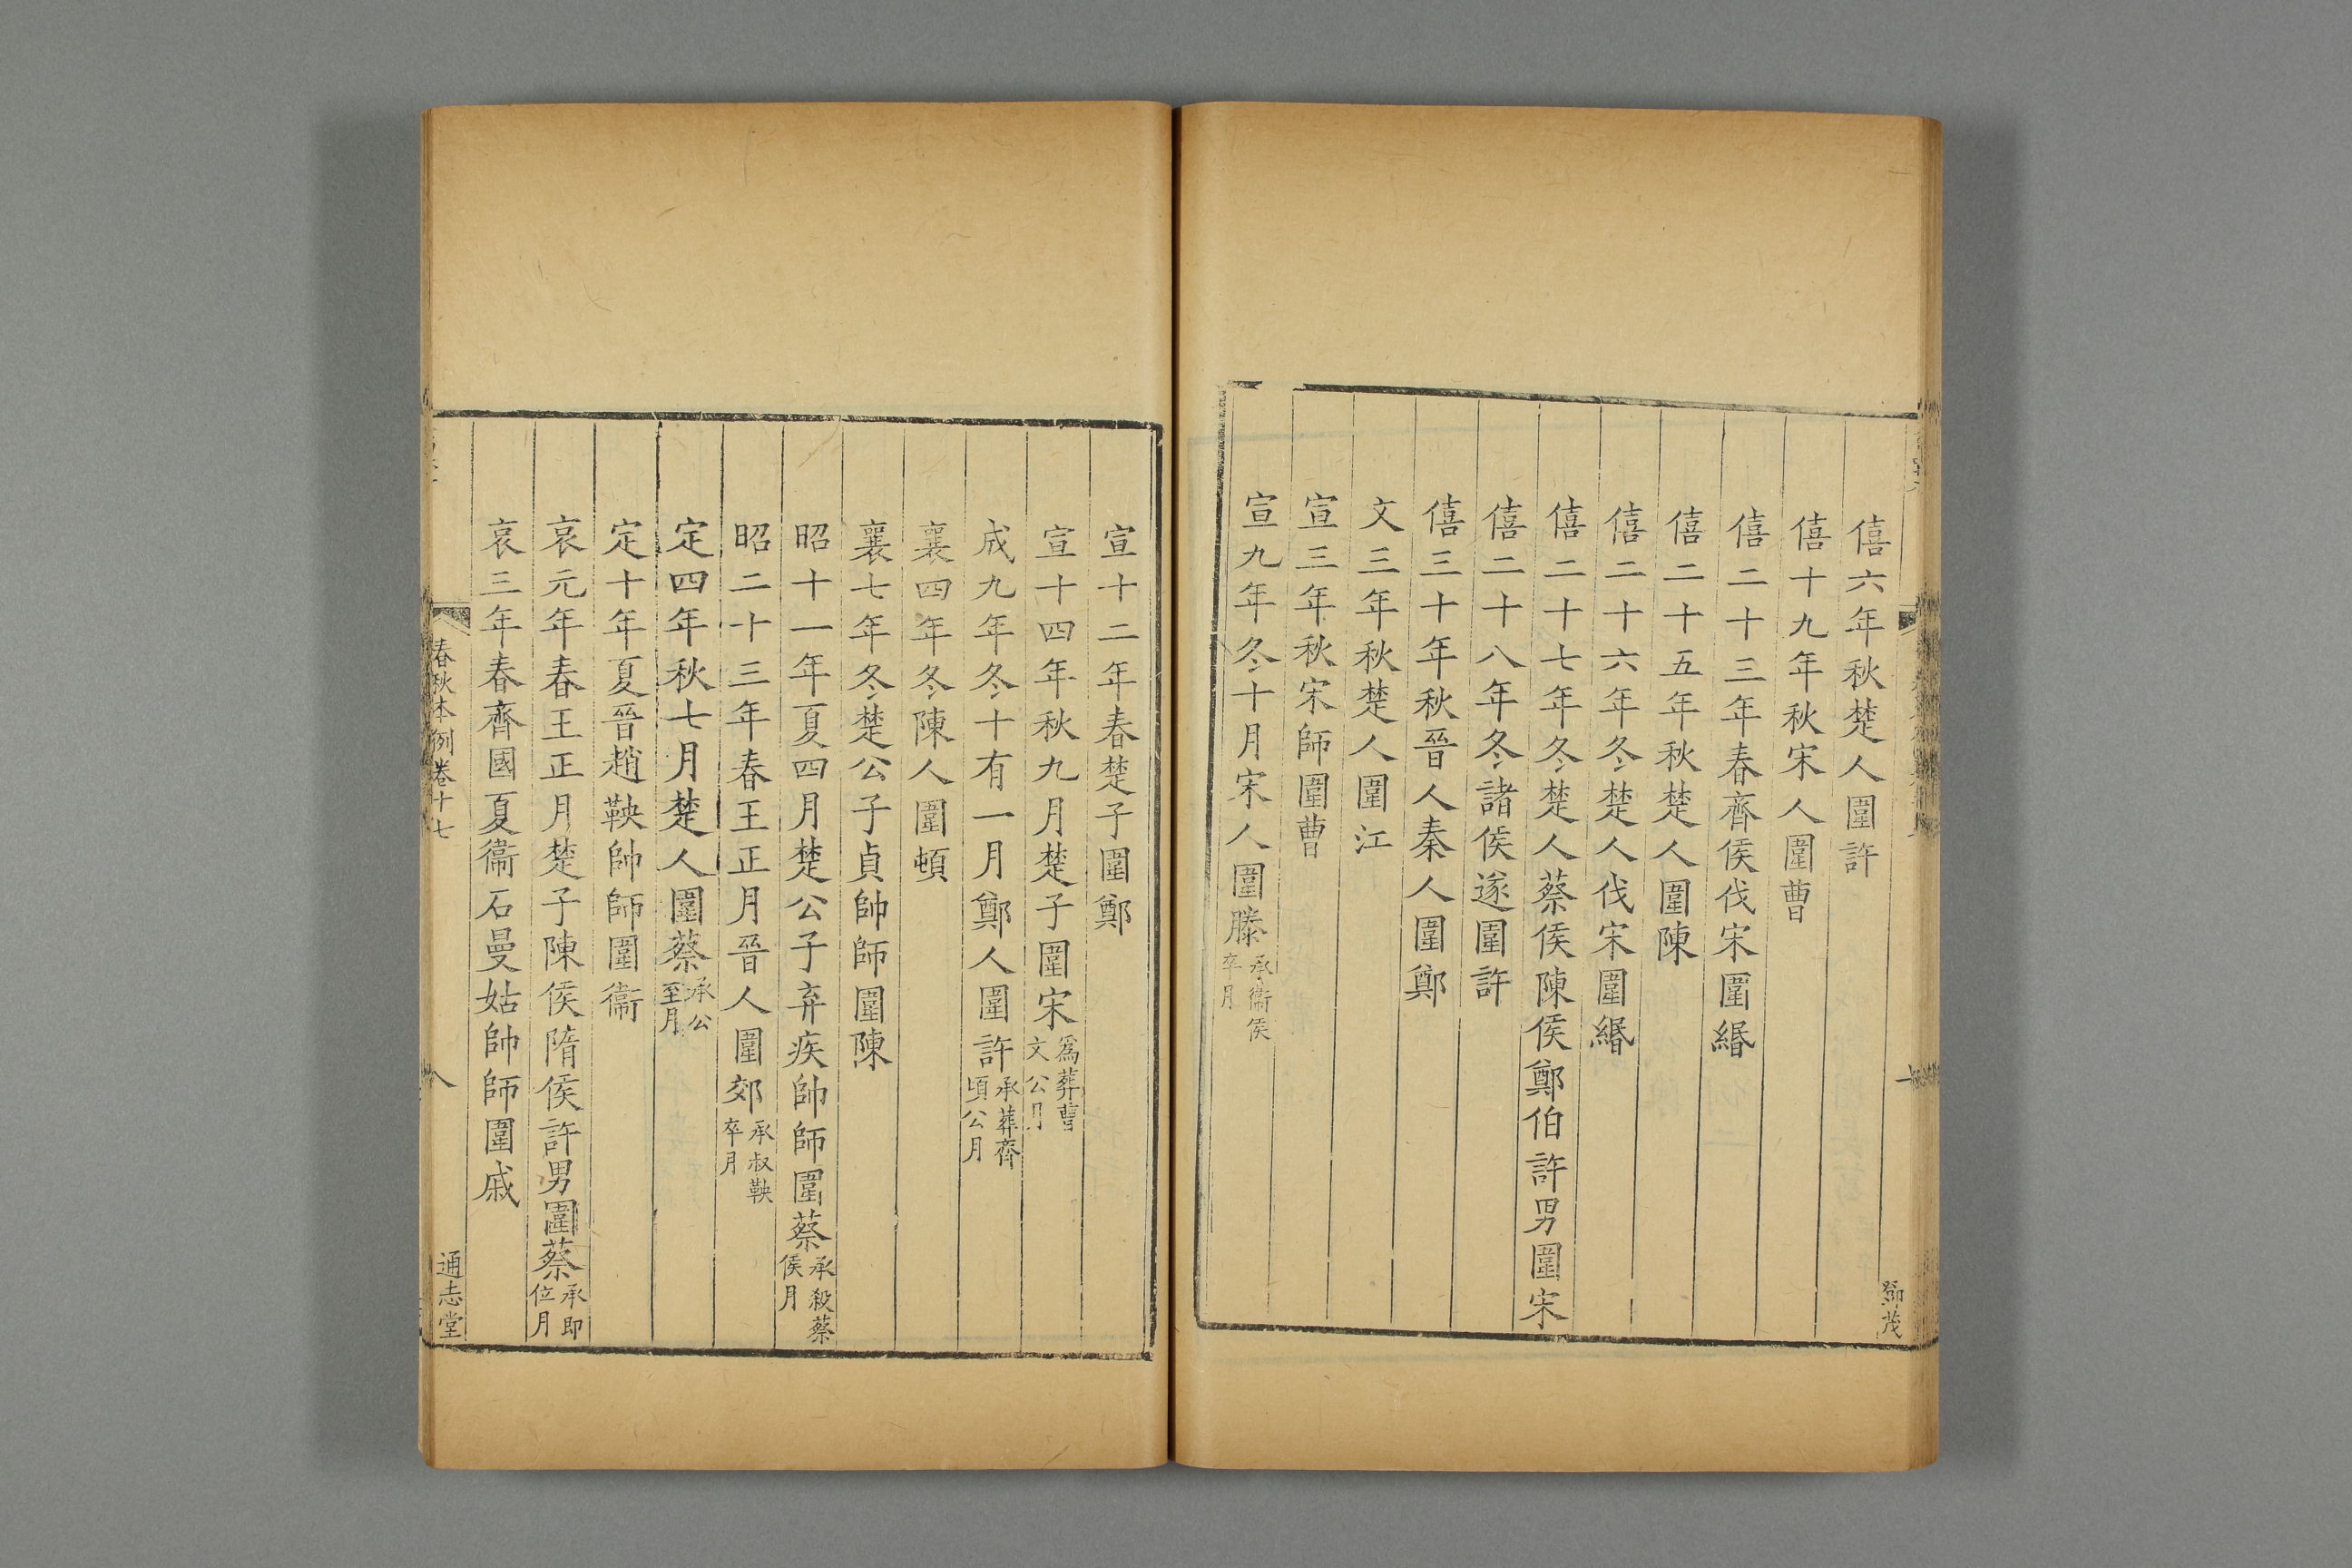 僖六年秋楚人圍許
僖十九年秋宋人圍曹
僖二十三年春齊侯伐宋圍緡
僖二十五年秋楚人圍陳
僖二十六年冬楚人伐宋圍緡
僖二十七年冬楚人蔡侯陳侯鄭伯許男圍宋
僖二十八年冬諸侯遂圍許
僖三十年秋晉人秦人圍鄭
文三年秋楚人圍江
宣三年秋宋師圍曹
宣九年冬十月宋人圍滕承衞侯卒月
宣十二年春楚子圍鄭
宣十四年秋九月楚子圍宋爲葬曹文公月
成九年冬十有一月鄭人圍許承葬齊頃公月
襄四年冬陳人圍頓
襄七年冬楚公子貞帥師圍陳
昭十一年夏四月楚公子弃疾帥師圍蔡承殺蔡侯月
昭二十三年春王正月晉人圍郊承叔鞅卒月
定四年秋七月楚人圍蔡承公至月
定十年夏晉趙鞅帥師圍衞
哀元年春王正月楚子陳侯隋侯許男圍蔡承即位月
哀三年春齊國夏衞石曼姑帥師圍戚
春秋本例卷十七
八
通志堂